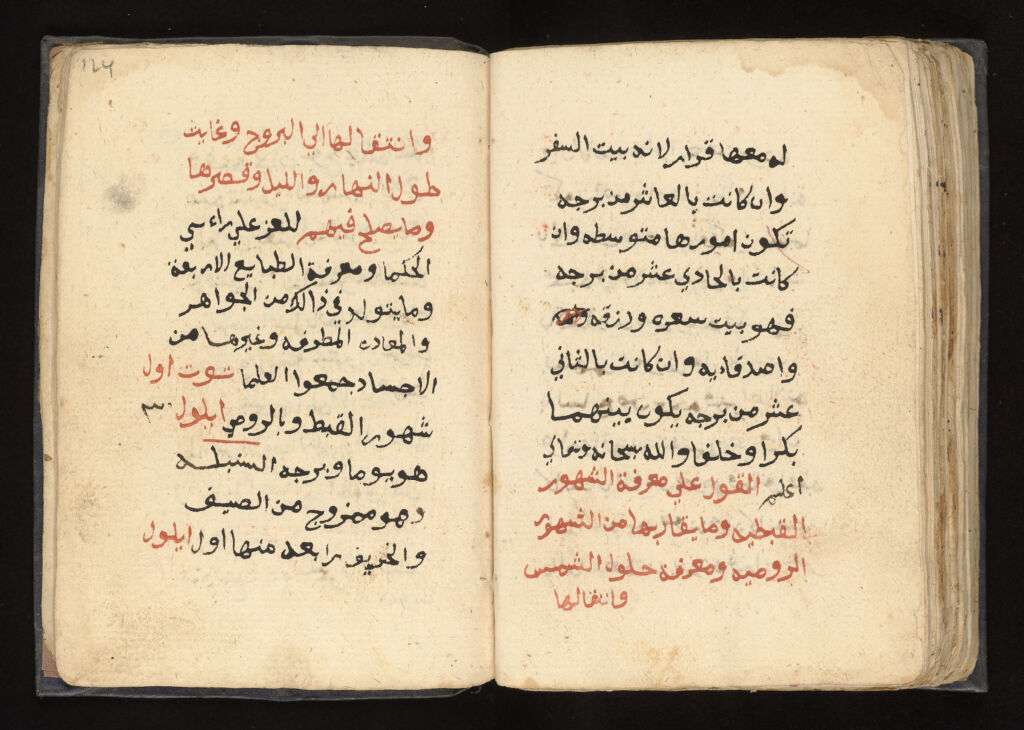 له معها قرار لانه بيت السفر
وان كانت بالعاشر من برجه
تكون امورها متوسطه وان
كانت بالحادي عشر من برجه
فهو بيت سعره ورزقه
واصدقايه وان كانت بالثاني
عشر من برجه يكون بينهما
بكرا وخلفا والله سبحانه وتعالي
اعلم القول علي معرفة الشهور
القبطيه وما يقاربها من الشهور
الروميه ومعرفة حلول الشمس
وانتقالها
١٢٤
وانتقالها الي البروج وغايت
طول النهار والليل وقصرها
وما يصلح فيهم للعز علي راءسي
الحكما ومعرفة الطبايع الاربعة
وما يتولد في ذالك من الجواهر
والمعادن المطرقه وغيرها من
الاجساد جمعوا العلما توت اول
شهور القبط وبالرومي ايلول
هو يوما وبرجه السنبله
وهو ممزوج من الصيف
والخريف رابعه منها اول ايلول